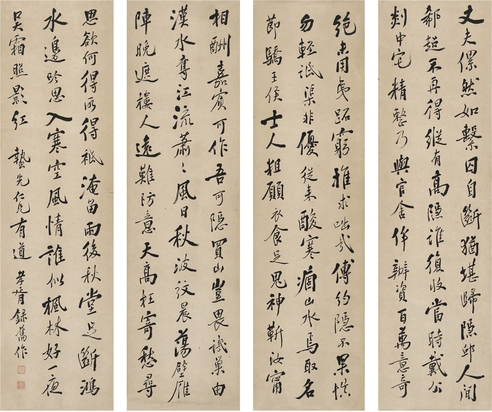 丈夫儻然如繫囚自斷猶堪歸隱邱人間
郗超不再得縱有高隱誰復收當時戴公
剡中宅精整乃與官舍侔辦資百萬意奇
絕未同曳踞窮雅求咄哉傅約隱不果慎
勿輕詆渠非優從來酸寒痼山水焉取名
節驕王侯士人粗願衣食足鬼神靳汝甯
相酬嘉賓可作吾可隱買山豈畏譏巢由
漢水奪江流蕭蕭風日秋波紋晨蕩壁雁
障晚遮樓人遠難防意天高枉寄愁尋
思欲何得所得祗淹留雨後秋堂足斷鴻
水邊吟思入寒空風情誰似楓林好一夜
吳霜照影紅 蟄先仁兄有道 孝胥錄舊作